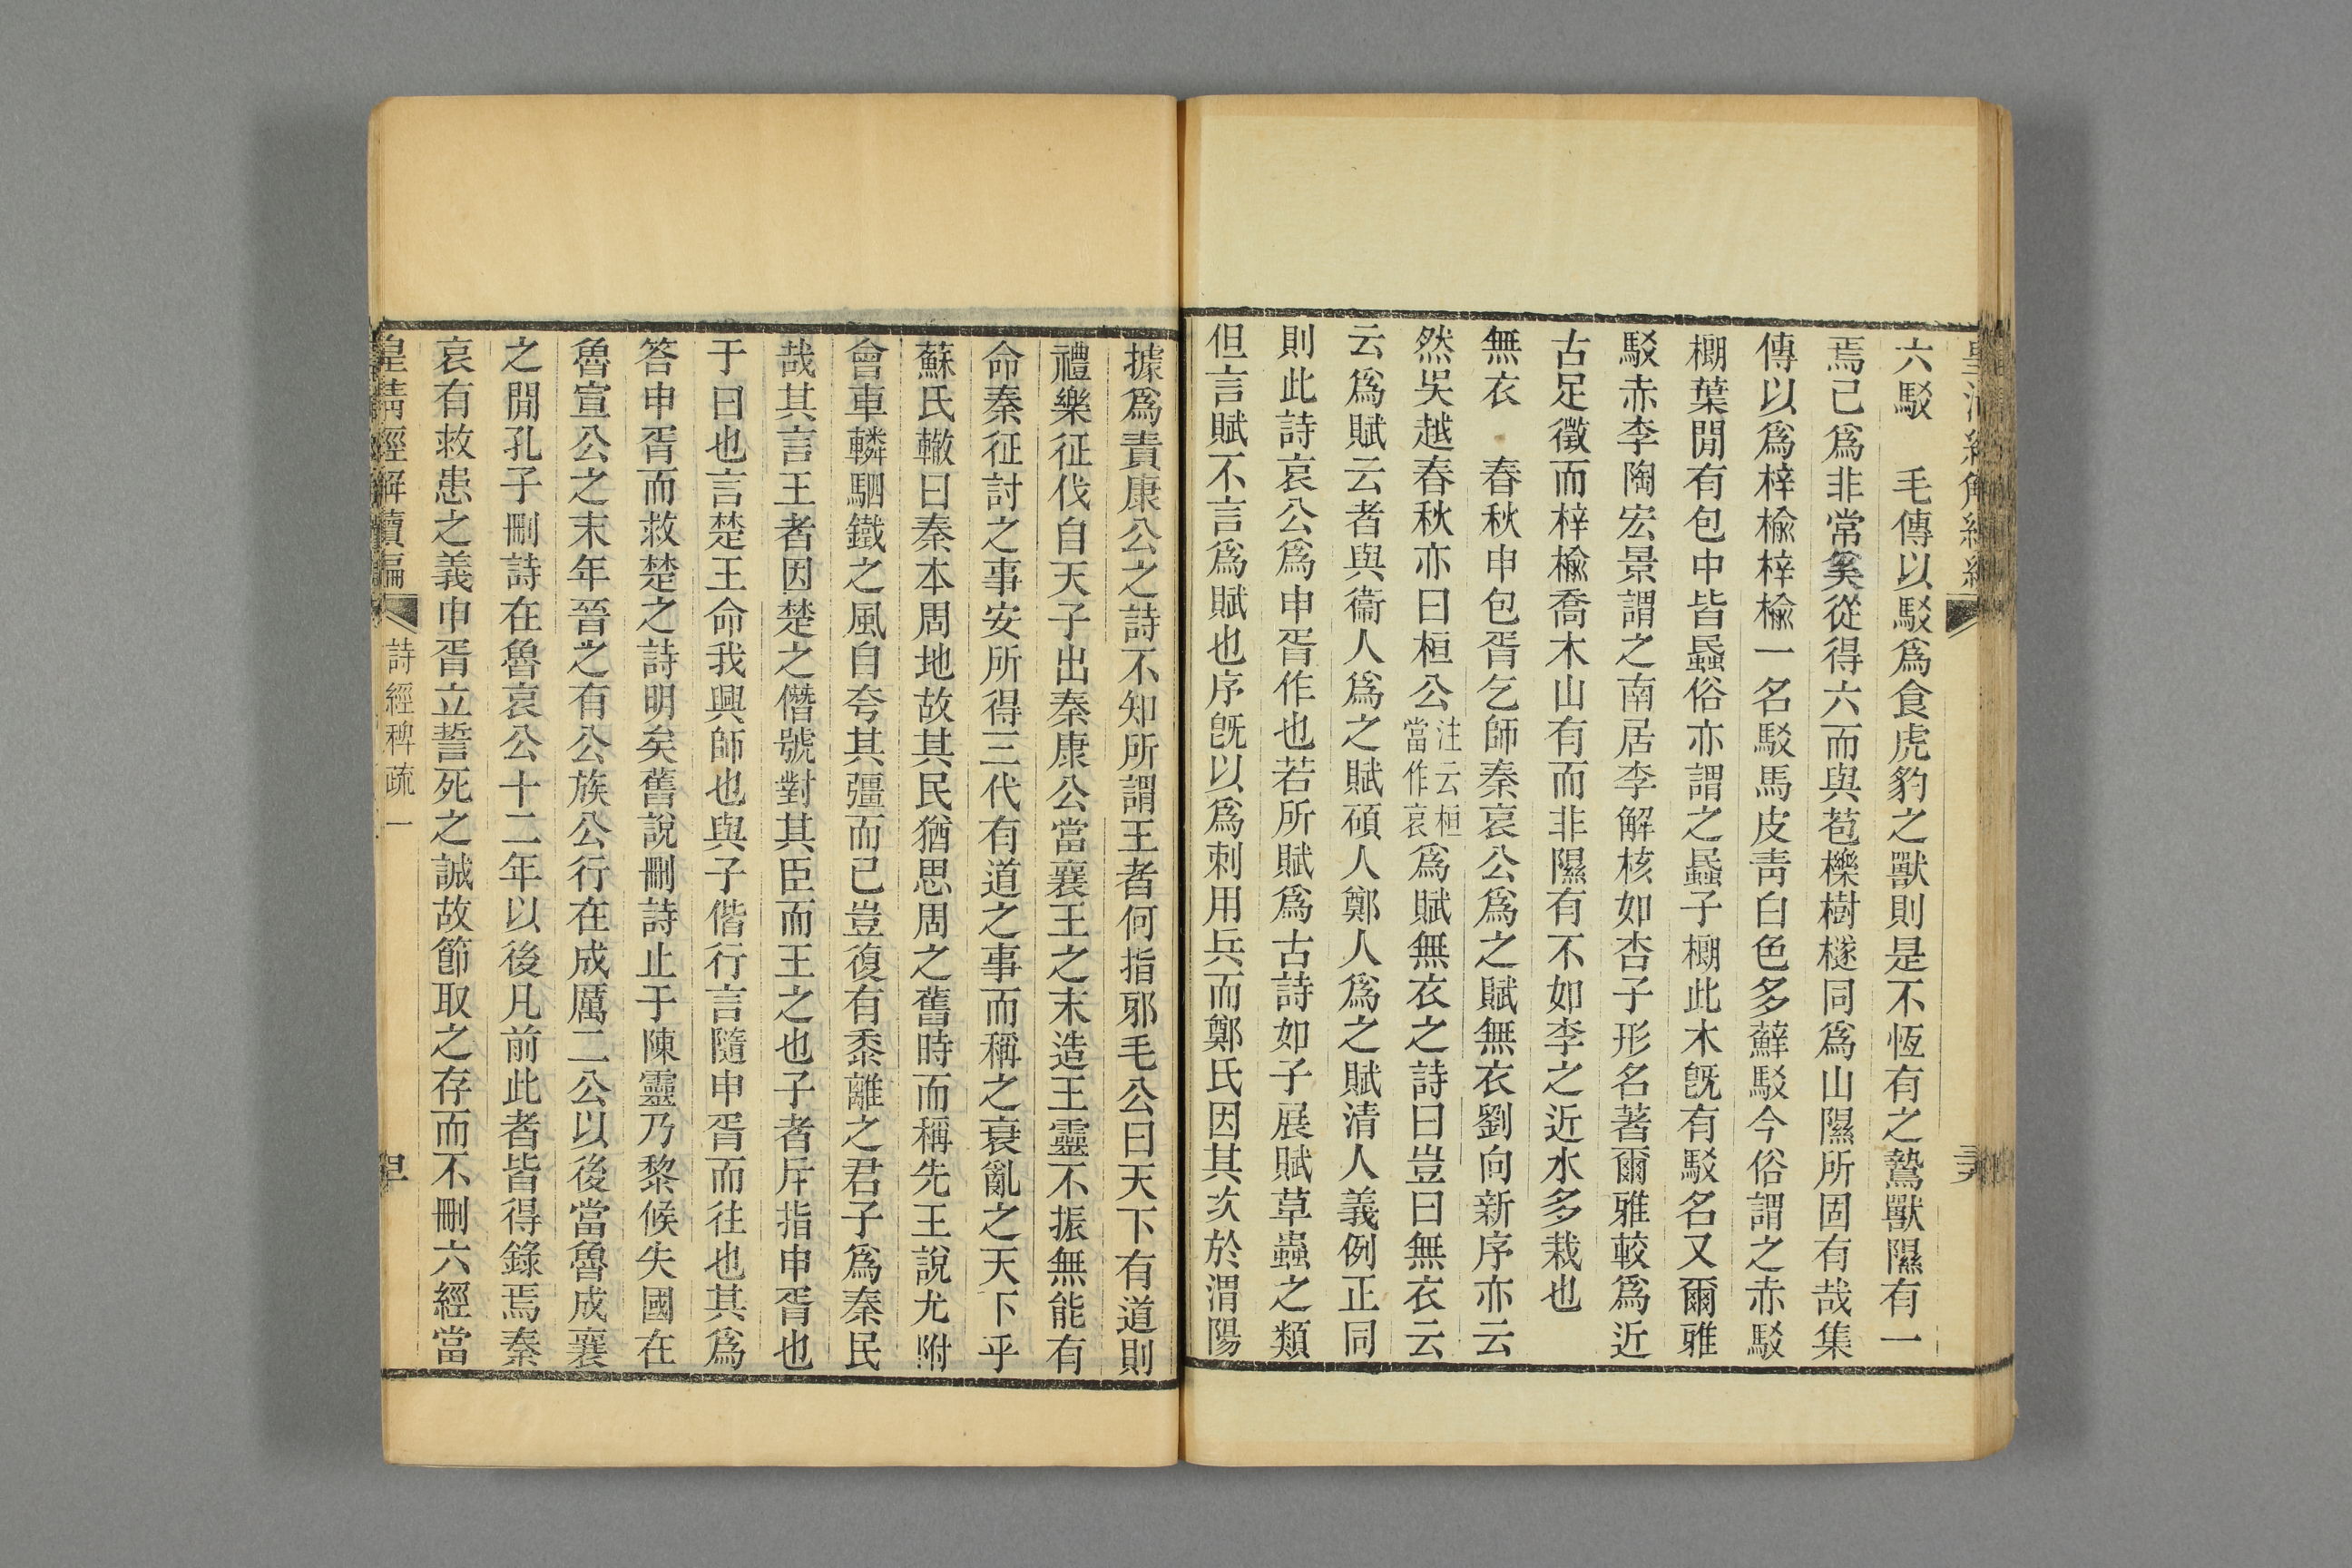 六駁　毛傳以駁爲食虎豹之獸則是不恆有之鷙獸隰有一
焉已爲非常奚從得六而與苞櫟樹檖同爲山隰所固有哉集
傳以爲梓楡梓楡一名駁馬皮靑白色多蘚駁今俗謂之赤駁
樃葉閒有包中皆蟁俗亦謂之蟁子樃此木旣有駁名又爾雅
駁赤李陶宏景謂之南居李解核如杏子形名著爾雅較爲近
古足徵而梓楡喬木山有而非隰有不如李之近水多栽也
無衣　春秋申包胥乞師秦哀公爲之賦無衣劉向新序亦云
然吳越春秋亦曰桓公注云桓當作哀爲賦無衣之詩曰豈曰無衣云
云爲賦云者與衞人爲之賦碩人鄭人爲之賦清人義例正同
則此詩哀公爲申胥作也若所賦爲古詩如子展賦草蟲之類
但言賦不言爲賦也序旣以爲刺用兵而鄭氏因其次於渭陽
據爲責康公之詩不知所謂王者何指邪毛公曰天下有道則
禮樂征伐自天子出秦康公當襄王之末造王靈不振無能有
命秦征討之事安所得三代有道之事而稱之衰亂之天下乎
蘇氏轍曰秦本周地故其民猶思周之舊時而稱先王說尤附
會車轔駟鐵之風自夸其彊而已豈復有黍離之君子爲秦民
哉其言王者因楚之僭號對其臣而王之也子者斥指申胥也
于曰也言楚王命我興師也與子偕行言隨申胥而往也其爲
答申胥而救楚之詩明矣舊說刪詩止于陳靈乃黎侯失國在
魯宣公之末年晉之有公族公行在成厲二公以後當魯成襄
之閒孔子刪詩在魯哀公十二年以後凡前此者皆得錄焉秦
哀有救患之義申胥立誓死之誠故節取之存而不刪六經當
皇淸經解續編　詩經稗疏一